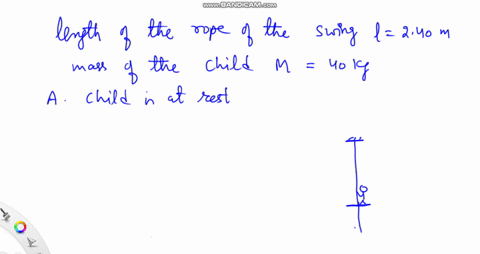 www.BANDICAM.com
length of the rope of the swing l = 2.40 m
mass of the child M = 40 kg
A. child is at rest